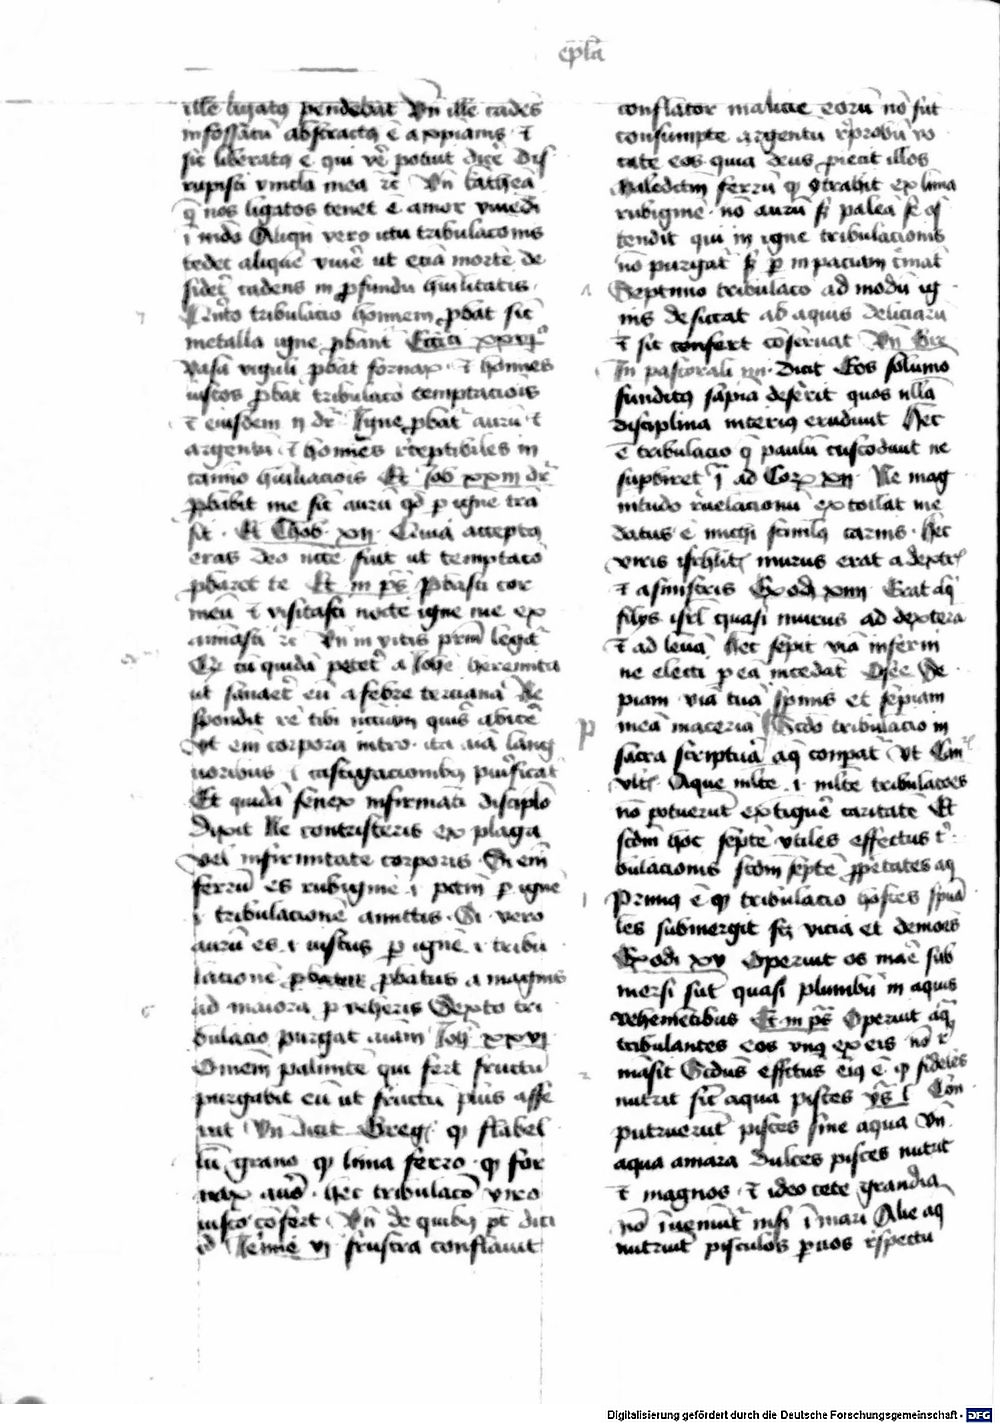 epla
ille ligatus pendebat Vn̄ ille cadēs
in fossatū abstractus ē a xp̄ianis ⁊
sic liberatus ē qui vē potuit dicē Dis
rupisti vincla mea ⁊c̄ Vn̄ cathena
q̄ nos ligatos tenet ē amor viuēdi
ī mūdo Aliqn̄ vero ictu tribulacōnis
tedet aliquē viuē ut eciā mortē de
sidet cadens in ꝓfundū hūilitatis
Quīto tribulacio hominem ꝓbat sic
metalla igne ꝓbant Eccī xxvij
Vasa figuli ꝓbat fornax ⁊ hoīnes
iustos ꝓbat tribulacō temptacōis
⁊ eiusdem ij dr̄ Igne ꝓbat aurū ⁊
argentū ⁊ homines receptibiles in
camino hūiliacōis Et Iob xxiij dr̄
ꝓbabit me sic aurū qd̄ ꝑ igne trā
sit Et Thob xij Quia acceptus
eras deo necē fuit ut temptacō
ꝓbaret te Et in ps̄ Probasti cor
meū ⁊ visitasti nocte igne me ex
aīasti ⁊c̄ Vn̄ in vitis pr̄m legit̄
Qr̄ cū quidā petet̄ a Iohē heremita
ut sanaet̄ eū a febre terciana Re
spondit rē tibi n̄cc̄iam quis abicē
Vt em̄ corpora nitro ita aīa lang
uoribus ⁊ castigacionibus purificat̄
Et quidā senex infirmanti disciplo
Dixit Ne contristeris ex plaga
vel infirmitate corporis Si em̄
ferrū es rubiginē .i. pctm̄ ꝑ ignē
.i. tribulacionē amittis Si vero
aurū es .i. iustus ꝑ ignē .i. tribu
lacionē ꝓbatus a magnis
ad maiora ꝓveheris Sexto tri
bulacio purgat aīam Ioh xv
Omnem palmitē qui fert fructū
purgabit eū ut fructū plus affe
rat Vn̄ dicit Greg qꝫ flabel
lū grano qꝫ lima ferro qꝫ for
nax auro hec tribulacō viro
iusto cōfert Vn̄ de quibus pt̄ dici
id Ierimie vi frustra conflauit
conflator malicie eorū nō sūt
consumpte argentū reprobū vo
cate eos quia deus ꝓiecit illos
Maledictm̄ ferrū qꝫ ɔtrahit ex lima
rubiginē nō aurū sꝫ palea se os
tendit qui in igne tribulacionis
nō purgat̄ sꝫ ꝑ inpaciam cīmat̄
Septimo tribulacō ad modū ig
nis desiccat ab aquis deliciarū
⁊ sic confert cōseruat Vn̄ Gre
In pastorali iiii Dicit Eos solūmo
funditus sapīa deserit quos nllā
disciplina interius erudiunt Hec
ē tribulacio q̄ paulū custodiuit ne
suꝑbiret ij ad Cor xij Ne mag
nitudo reuelacionū extollat me
datus ē michi stimlus carnis Hec
viris isrhlit murus erat a dextr̄
⁊ a sinistris Exodi xiiii Erat aq̄
filijs isrl quasi murus ad dextera
⁊ ad leuā Hec sepit viā inferni
ne electi ꝑ eā incedāt Osee Se
piam viā tuā spinis et sepiam
meā maceria Scdō tribulacio in
sacra scriptura aq̄ compat̄ Vt Cant̄
vlt̄ Aque mlte .i. mlte tribulacōes
nō potuerūt extinguē caritatē Et
scdm̄ hoc septē vtiles effectus t̄
bulacionis scdm̄ septē ꝓprietates aq̄
Primus ē qꝫ tribulacio hostes spūa
les submergit scꝫ vicia et demōes
Exodi xv Operuit os marē sub
mersi sūt quasi plumbū in aquis
vehemētibus Et in ps̄ Operuit aq̄
tribulantes eos vnus ex eis nō r̄
māsit Scdus effc̄tus eius ē qꝫ fideles
nutrit sic aqua pisces Ys̄ l Con
putruerūt pisces sine aqua Vn̄
aqua amara dulces pisces nutrit
⁊ magnos ⁊ ideo cete grandia
nō īueniūt̄ nisi ī mari Alie aq̄
nutriūt pisculos ꝑuos respectu
Digitalisierung gefördert durch die Deutsche Forschungsgemeinschaft - DFG